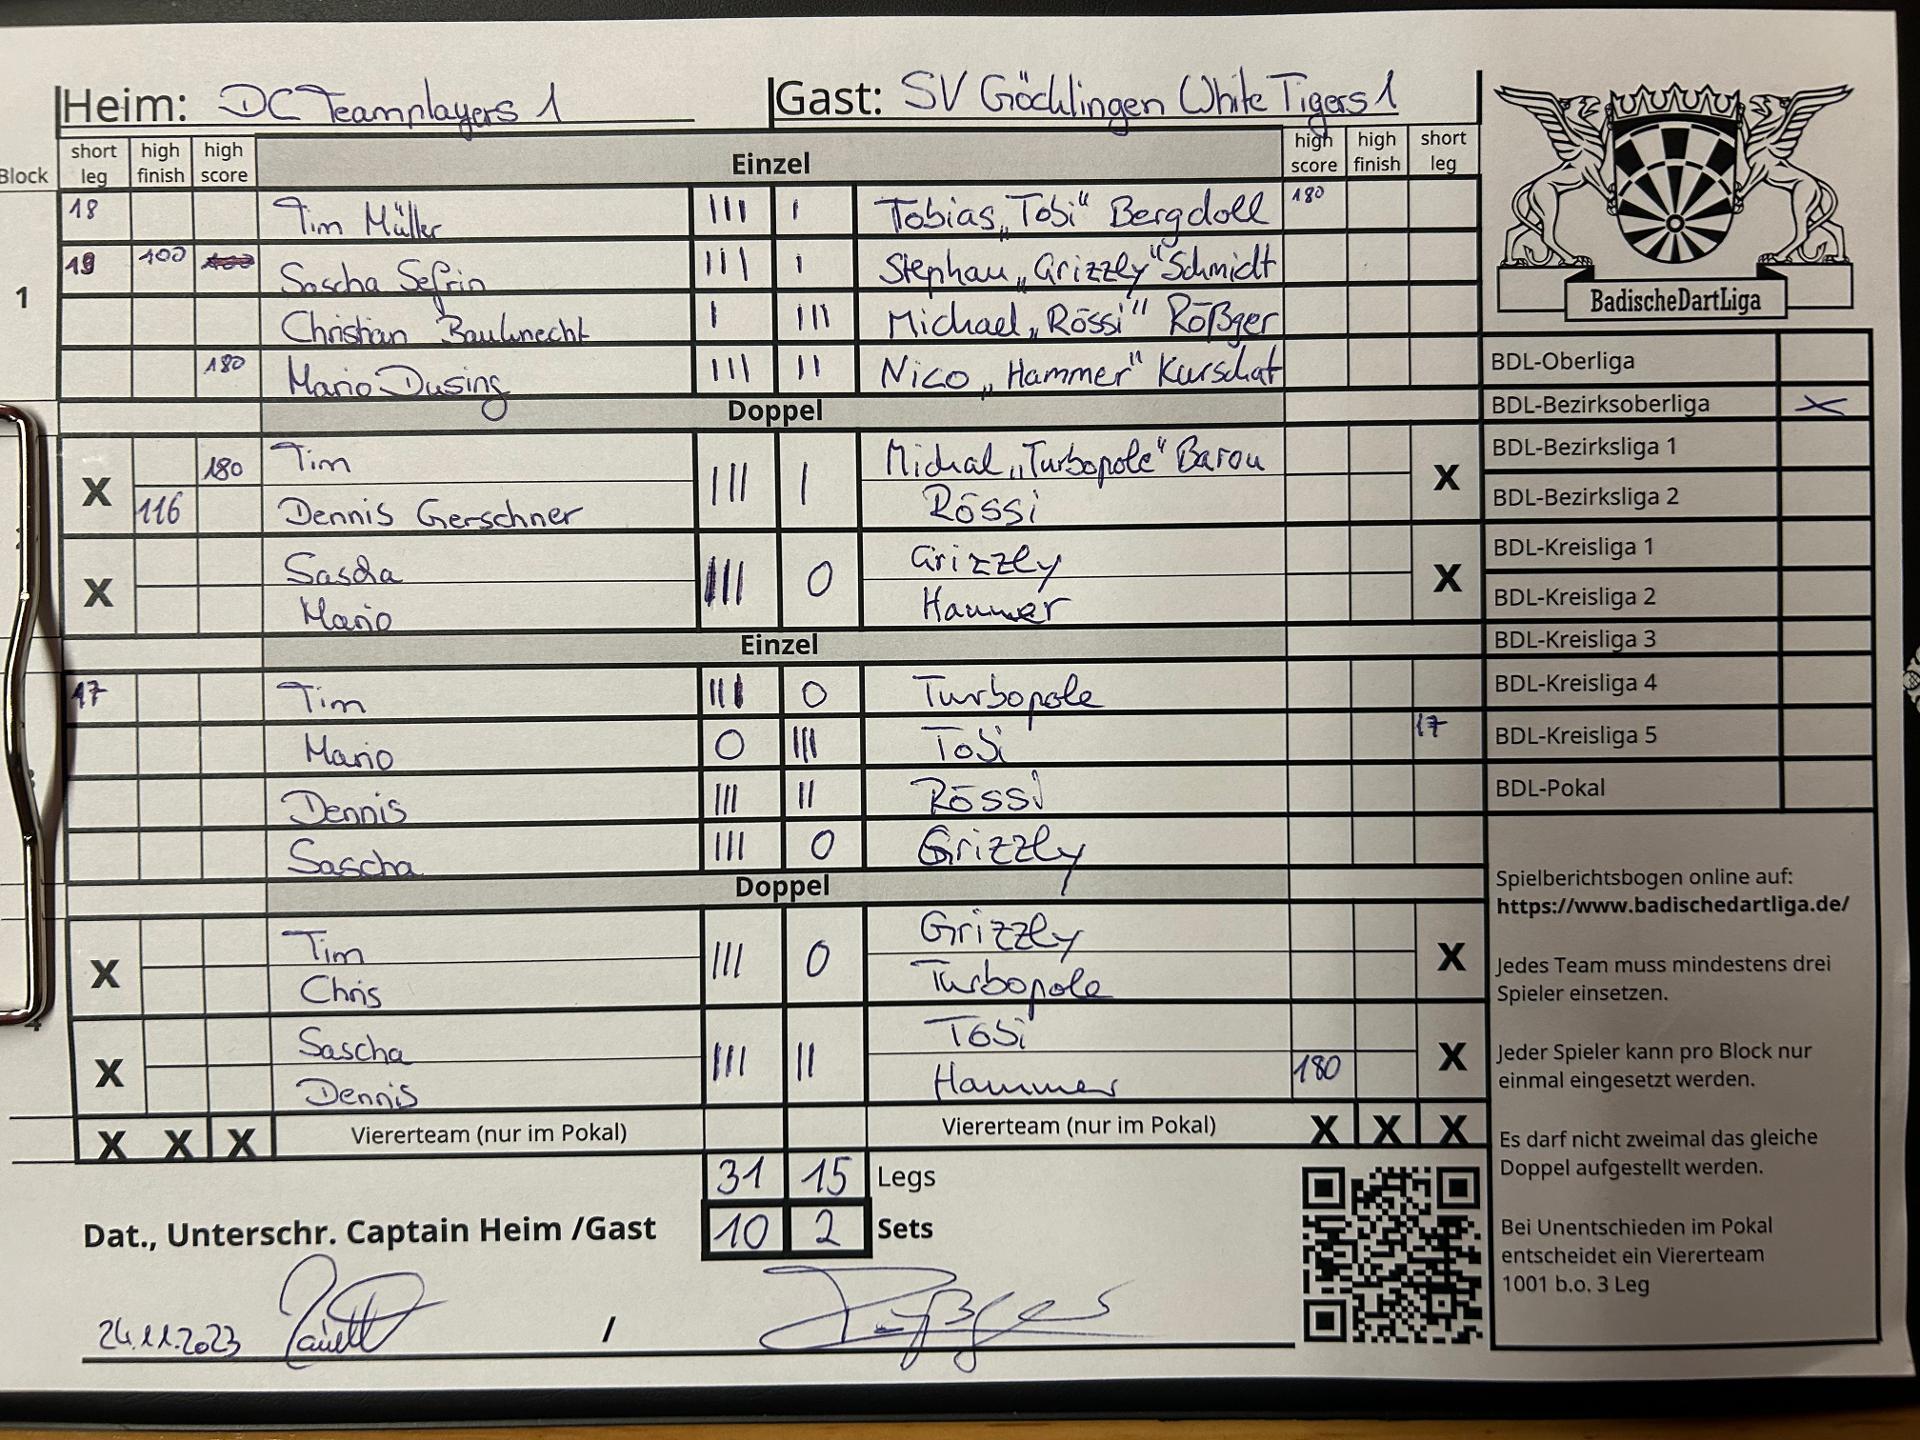 Heim: DC Teamplayers 1 Gast: SV Göcklingen White Tigers 1
Block short leg high finish high score Einzel high score high finish short leg
1
18 Tim Müller III I Tobias „Tobi" Bergdoll 180
19 100 Sascha Sefrin III I Stephan „Grizzly" Schmidt
Christian Bauknecht I III Michael „Rössi" Rößger
180 Mario Dusing III II Nico „Hammer" Kurschat
Doppel
X 180 Tim III I Michal „Turbopole" Baron X
116 Dennis Gerschner Rössi
X Sascha III 0 Grizzly X
Mario Hammer
Einzel
17 Tim III 0 Turbopole
Mario 0 III Tobi 17
Dennis III II Rössi
Sascha III 0 Grizzly
Doppel
X Tim III 0 Grizzly X
Chris Turbopole
4
X Sascha III II Tobi X
Dennis Hammer 180
X X X Viererteam (nur im Pokal) Viererteam (nur im Pokal) X X X
31 15 Legs
10 2 Sets
Dat., Unterschr. Captain Heim /Gast
24.11.2023 / Rößger
BadischeDartLiga
BDL-Oberliga
BDL-Bezirksoberliga X
BDL-Bezirksliga 1
BDL-Bezirksliga 2
BDL-Kreisliga 1
BDL-Kreisliga 2
BDL-Kreisliga 3
BDL-Kreisliga 4
BDL-Kreisliga 5
BDL-Pokal
Spielberichtsbogen online auf:
https://www.badischedartliga.de/
Jedes Team muss mindestens drei
Spieler einsetzen.
Jeder Spieler kann pro Block nur
einmal eingesetzt werden.
Es darf nicht zweimal das gleiche
Doppel aufgestellt werden.
Bei Unentschieden im Pokal
entscheidet ein Viererteam
1001 b.o. 3 Leg